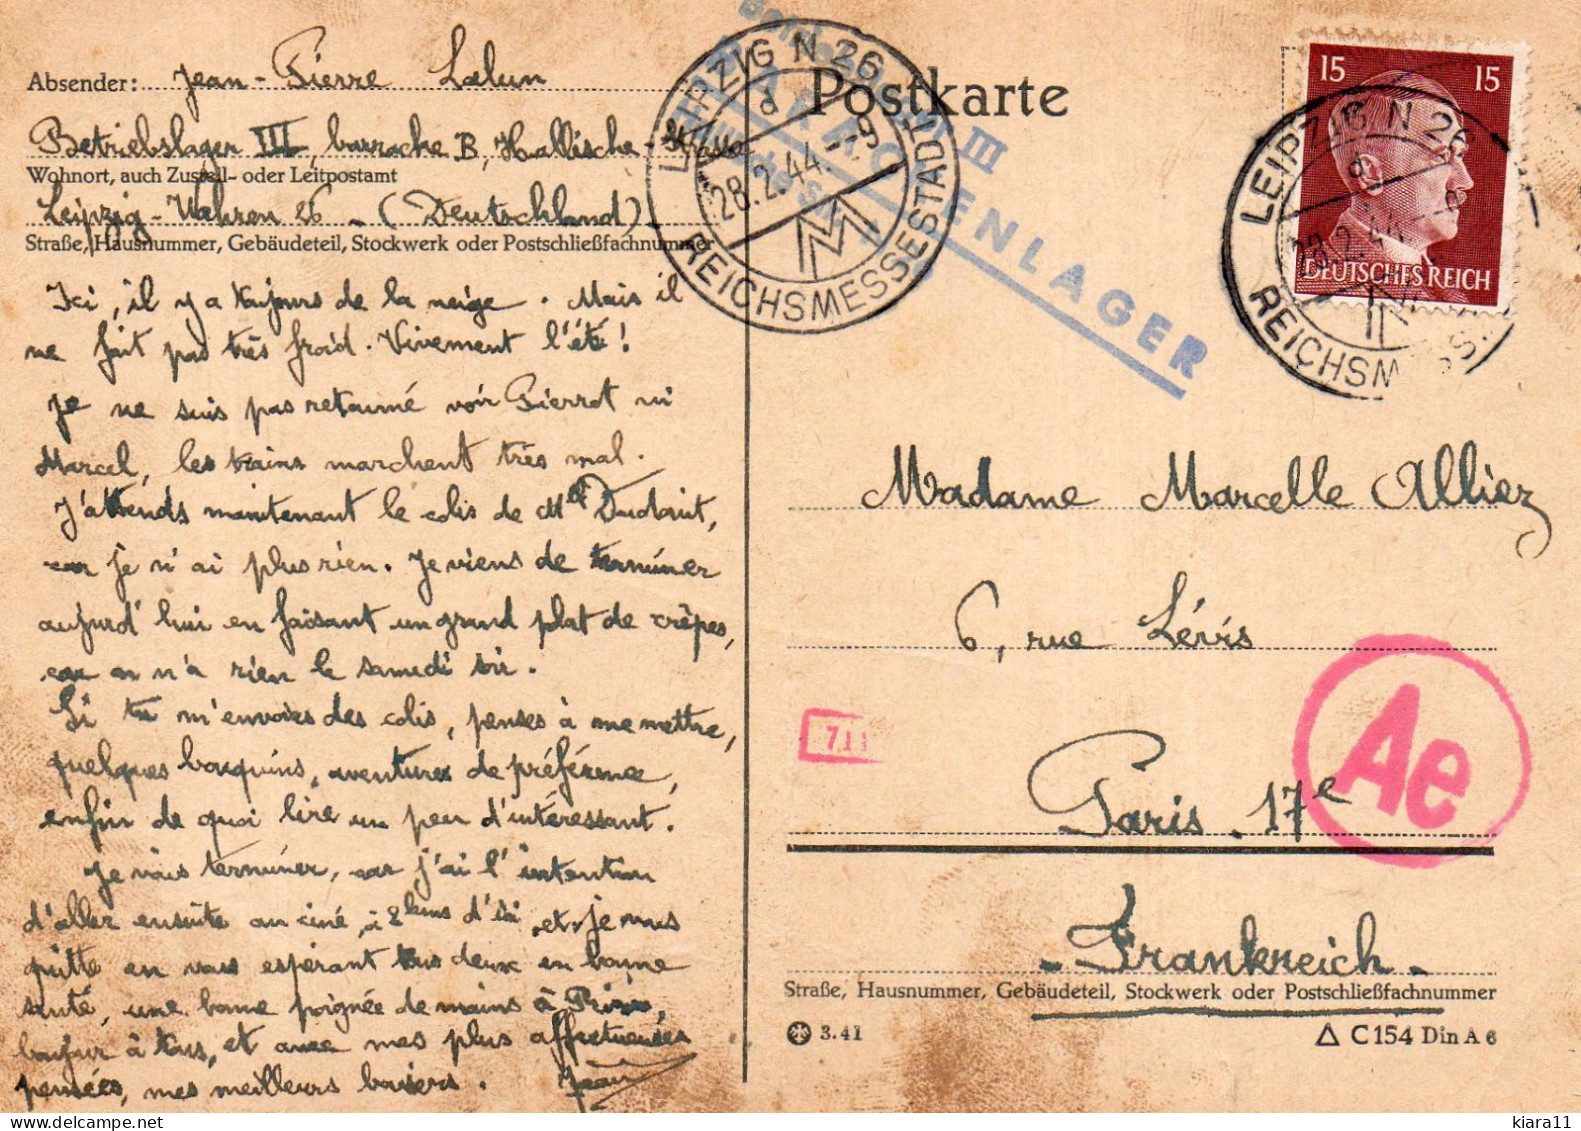 Absender: Jean-Pierre
Betriebslager III, barrache B, Hallische-Strasse
Wohnort, auch Zustell- oder Leitpostamt
Leipzig-Wahren 26 - (Deutschland)
Straße, Hausnummer, Gebäudeteil, Stockwerk oder Postschließfachnummer
Ici, il y a toujours de la neige. Mais il
ne fait pas très froid. Vivement l'été!
Je ne suis pas retourné voir Pierrot ni
Marcel, les trains marchent très mal.
J'attends maintenant le colis de
car je n'ai plus rien. Je viens de terminer
aujourd'hui en faisant un grand plat de crêpes,
car on n'a rien le samedi soir.
Si tu m'envoies des colis, penses à me mettre,
quelques bouquins, aventures de préférence,
enfin de quoi lire un peu d'intéressant.
Je vais terminer, car j'ai l'intention
d'aller ensuite au ciné, à 2kms d'ici, et je vous
quitte en vous espérant tous deux en bonne
santé, une bonne poignée de mains à
bonjour à tous, et avec mes plus affectueuses
pensées, mes meilleurs baisers. Jean
Postkarte
LEIPZIG N 26
d
28.2.44.-9
REICHSMESSESTADT
III
BARACKENLAGER
15 15
DEUTSCHES REICH
LEIPZIG N 26
d
28.2.44
REICHSMESS
Madame Marcelle Alliez
6, rue Lévis
711
Ae
Paris . 17e
- Frankreich -
Straße, Hausnummer, Gebäudeteil, Stockwerk oder Postschließfachnummer
3.41
C 154 Din A 6
kiara11